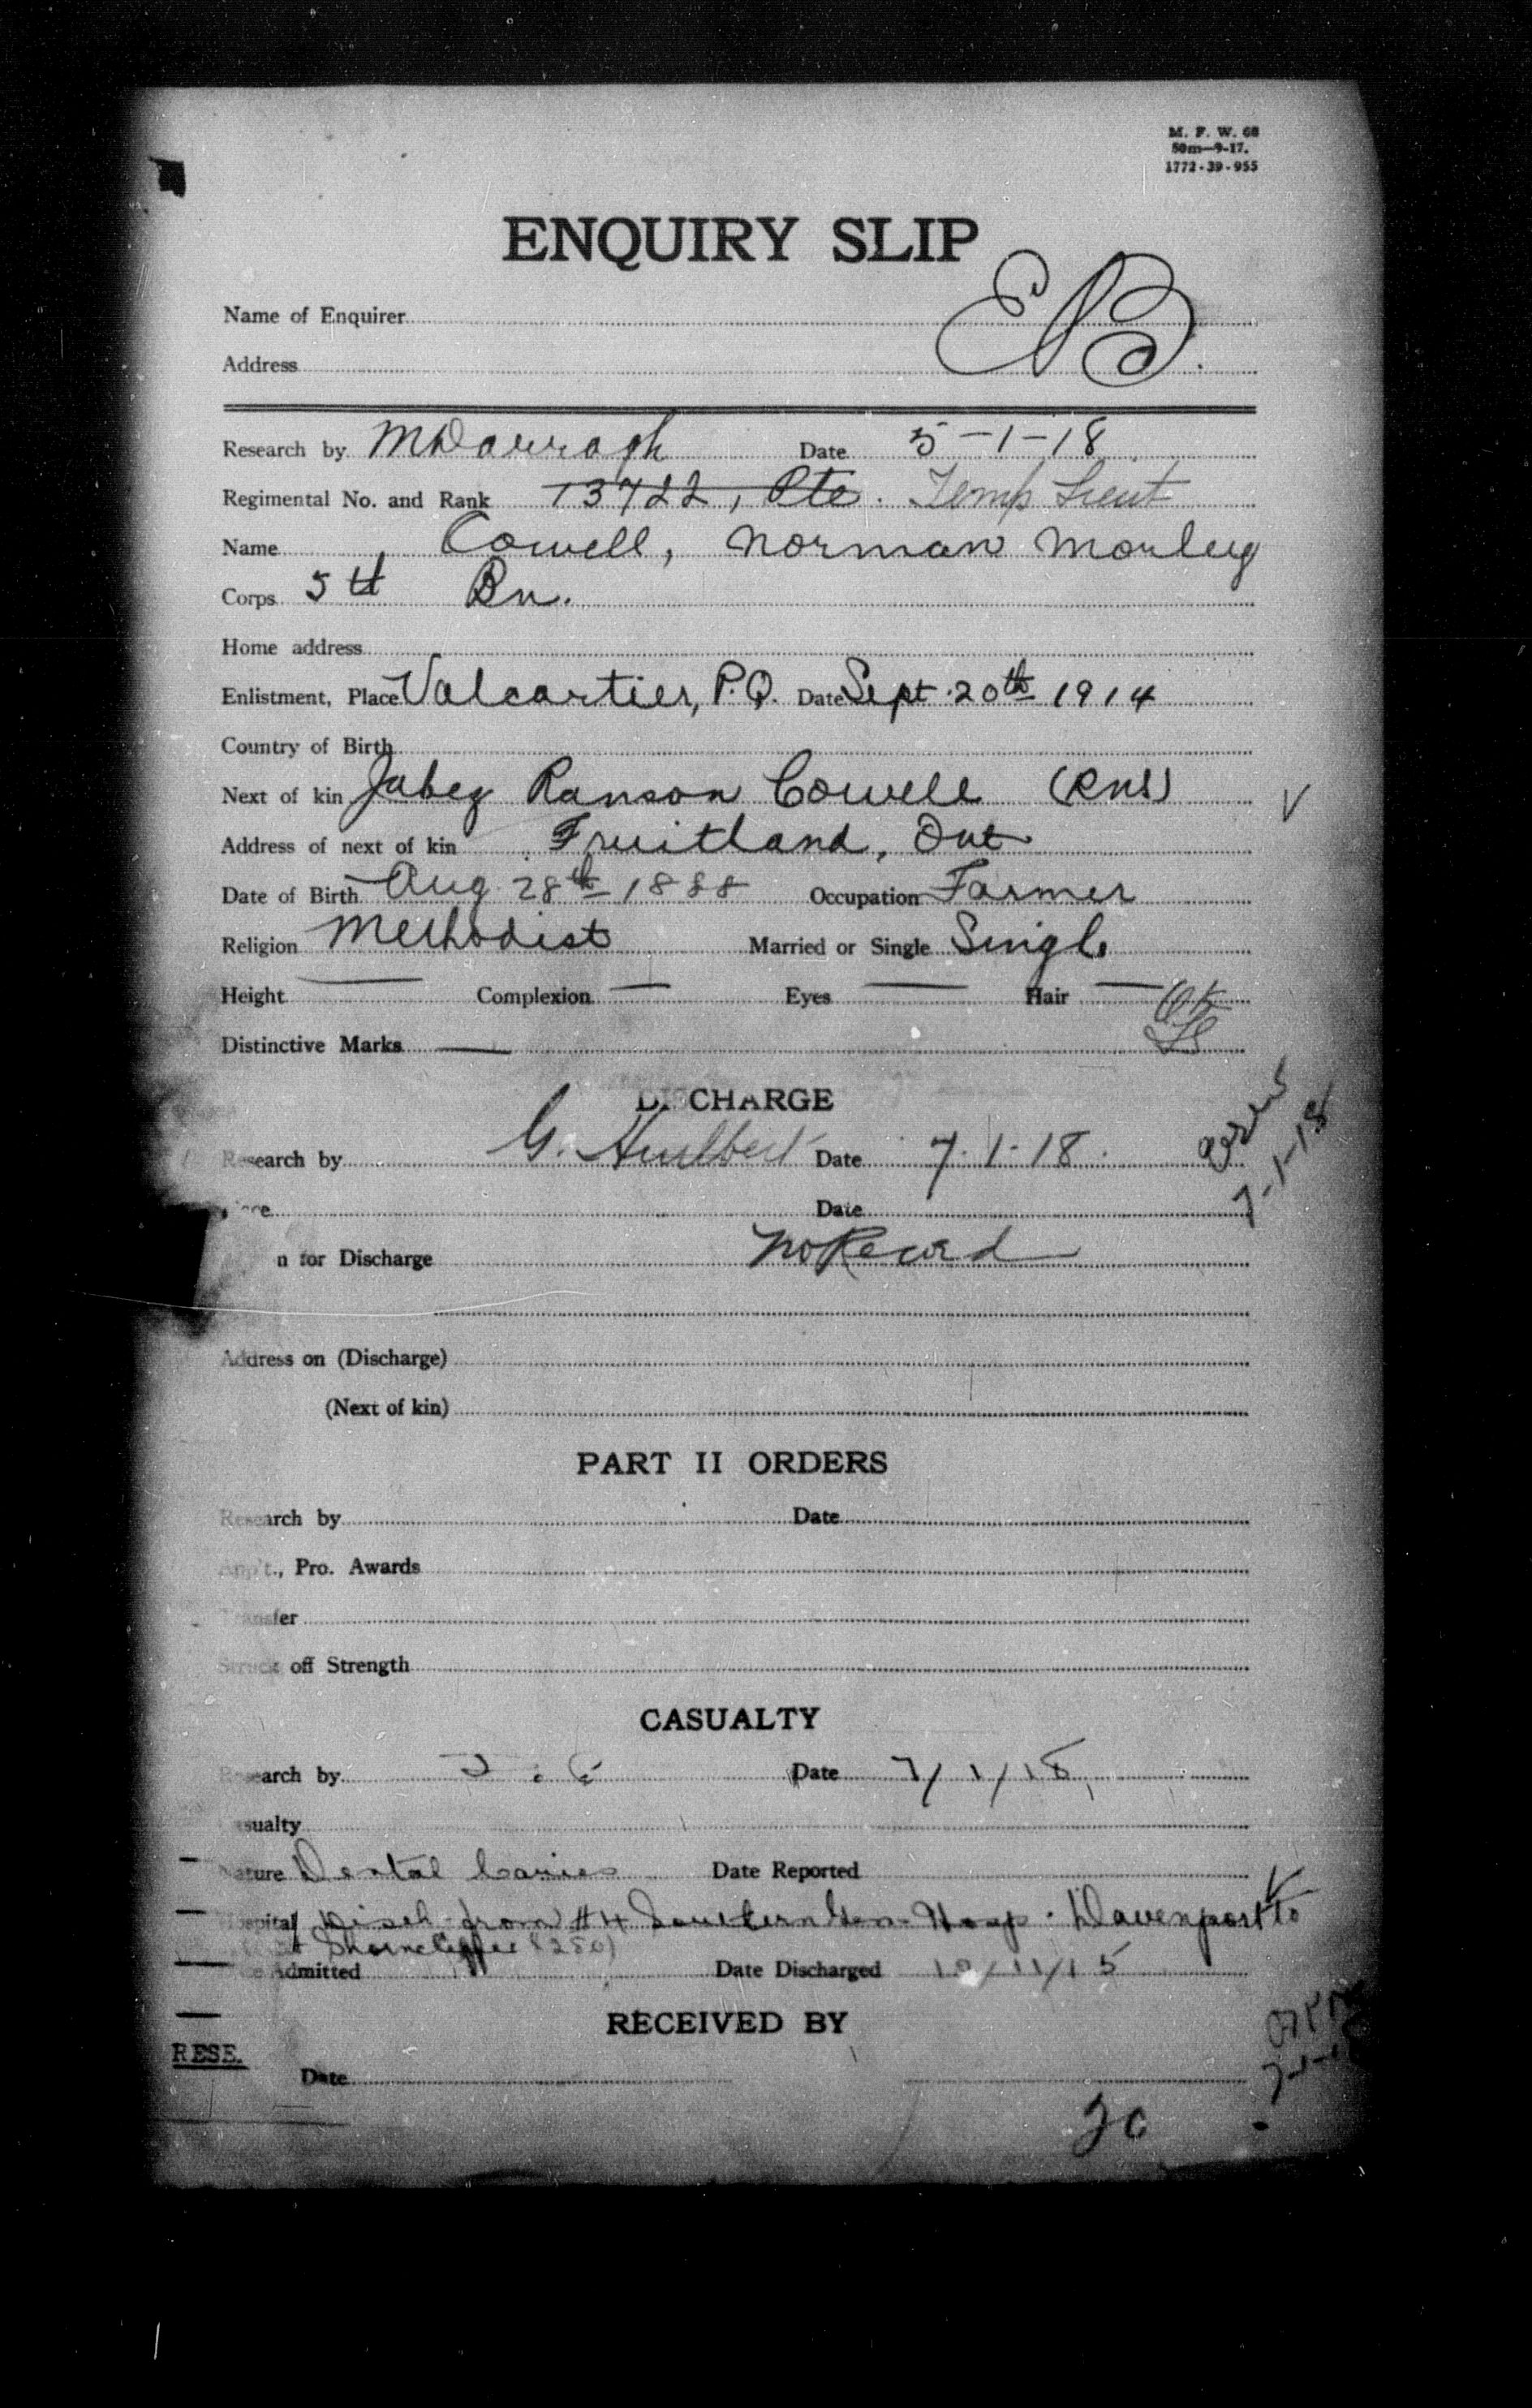 M. F. W. 68
50m—9-17.
1772-39-955
ENQUIRY SLIP
Name of Enquirer
Address
Research by McDarragh Date 5-1-18
Regimental No. and Rank 13722, Pte. Temp Lieut
Name Cowell, Norman Morley
Corps 5th Bn.
Home address
Enlistment, Place Valcartier, P.Q. Date Sept. 20th 1914
Country of Birth
Next of kin Jabez Ranson Cowell
Address of next of kin Fruitland, Ont
Date of Birth Aug 28th 1888 Occupation Farmer
Religion Methodist Married or Single Single
Height — Complexion — Eyes — Hair —
Distinctive Marks —
DISCHARGE
Research by G. Hurlbert Date 7.1.18.
7-1-18
Date
n for Discharge No Record
Address on (Discharge)
(Next of kin)
PART II ORDERS
Research by Date
App't., Pro. Awards
Transfer
Struck off Strength
CASUALTY
Research by Date 7/1/18
sualty
Nature Dental Caries Date Reported
Hospital Disch from #4 Southern Gen. Hosp. Davenport to
Shorncliffe (250)
Admitted Date Discharged 10/11/15
RECEIVED BY
RESE.
Date